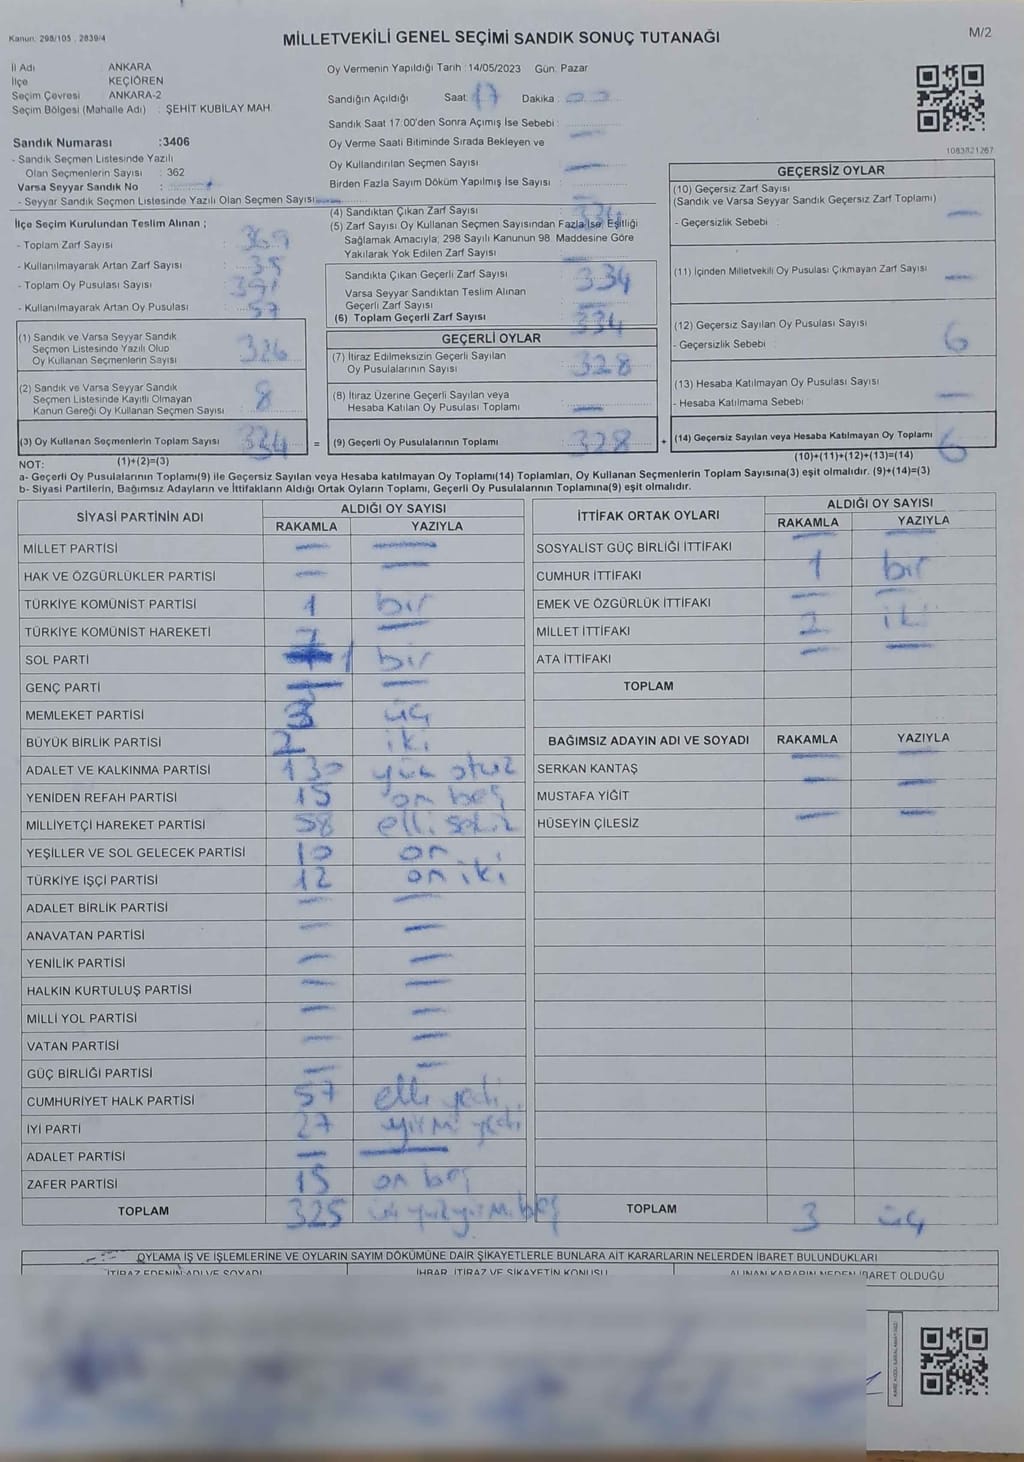 Kanun: 298/105 , 2839/4
MİLLETVEKİLİ GENEL SEÇİMİ SANDIK SONUÇ TUTANAĞI
M/2
İl Adı : ANKARA
İlçe : KEÇİÖREN
Seçim Çevresi : ANKARA-2
Seçim Bölgesi (Mahalle Adı) : ŞEHİT KUBİLAY MAH.
Sandık Numarası :3406
- Sandık Seçmen Listesinde Yazılı
Olan Seçmenlerin Sayısı : 362
Varsa Seyyar Sandık No :
- Seyyar Sandık Seçmen Listesinde Yazılı Olan Seçmen Sayısı:
Oy Vermenin Yapıldığı Tarih :14/05/2023 Gün: Pazar
Sandığın Açıldığı Saat: 17 Dakika : 00
Sandık Saat 17:00'den Sonra Açımış İse Sebebi :
Oy Verme Saati Bitiminde Sırada Bekleyen ve —
Oy Kullandırılan Seçmen Sayısı : —
Birden Fazla Sayım Döküm Yapılmış İse Sayısı : —
1083821267
İlçe Seçim Kurulundan Teslim Alınan ;
- Toplam Zarf Sayısı : 369
- Kullanılmayarak Artan Zarf Sayısı : 35
- Toplam Oy Pusulası Sayısı : 391
- Kullanılmayarak Artan Oy Pusulası : 57
(1) Sandık ve Varsa Seyyar Sandık
Seçmen Listesinde Yazılı Olup
Oy Kullanan Seçmenlerin Sayısı : 326
(2) Sandık ve Varsa Seyyar Sandık
Seçmen Listesinde Kayıtlı Olmayan
Kanun Gereği Oy Kullanan Seçmen Sayısı : 8
(3) Oy Kullanan Seçmenlerin Toplam Sayısı : 334
(4) Sandıktan Çıkan Zarf Sayısı : 334
(5) Zarf Sayısı Oy Kullanan Seçmen Sayısından Fazla İse, Eşitliği
Sağlamak Amacıyla; 298 Sayılı Kanunun 98. Maddesine Göre
Yakılarak Yok Edilen Zarf Sayısı : —
Sandıkta Çıkan Geçerli Zarf Sayısı : 334
Varsa Seyyar Sandıktan Teslim Alınan
Geçerli Zarf Sayısı : —
(6) Toplam Geçerli Zarf Sayısı : 334
GEÇERLİ OYLAR
(7) İtiraz Edilmeksizin Geçerli Sayılan
Oy Pusulalarının Sayısı : 328
(8) İtiraz Üzerine Geçerli Sayılan veya
Hesaba Katılan Oy Pusulası Toplamı : —
= (9) Geçerli Oy Pusulalarının Toplamı : 328 +
GEÇERSİZ OYLAR
(10) Geçersiz Zarf Sayısı
(Sandık ve Varsa Seyyar Sandık Geçersiz Zarf Toplamı)
- Geçersizlik Sebebi : —
(11) İçinden Milletvekili Oy Pusulası Çıkmayan Zarf Sayısı —
(12) Geçersiz Sayılan Oy Pusulası Sayısı
- Geçersizlik Sebebi : 6
(13) Hesaba Katılmayan Oy Pusulası Sayısı
- Hesaba Katılmama Sebebi : —
(14) Geçersiz Sayılan veya Hesaba Katılmayan Oy Toplamı 6
NOT: (1)+(2)=(3) (10)+(11)+(12)+(13)=(14)
a- Geçerli Oy Pusulalarının Toplamı(9) ile Geçersiz Sayılan veya Hesaba katılmayan Oy Toplamı(14) Toplamları, Oy Kullanan Seçmenlerin Toplam Sayısına(3) eşit olmalıdır. (9)+(14)=(3)
b- Siyasi Partilerin, Bağımsız Adayların ve İttifakların Aldığı Ortak Oyların Toplamı, Geçerli Oy Pusulalarının Toplamına(9) eşit olmalıdır.
SİYASİ PARTİNİN ADI ALDIĞI OY SAYISI
RAKAMLA YAZIYLA
MİLLET PARTİSİ — —
HAK VE ÖZGÜRLÜKLER PARTİSİ — —
TÜRKİYE KOMÜNİST PARTİSİ 1 bir
TÜRKİYE KOMÜNİST HAREKETİ —
SOL PARTİ 1 bir
GENÇ PARTİ — —
MEMLEKET PARTİSİ 3 üç
BÜYÜK BİRLİK PARTİSİ 2 iki
ADALET VE KALKINMA PARTİSİ 130 yüz otuz
YENİDEN REFAH PARTİSİ 15 on beş
MİLLİYETÇİ HAREKET PARTİSİ 58 elli sekiz
YEŞİLLER VE SOL GELECEK PARTİSİ 10 on
TÜRKİYE İŞÇİ PARTİSİ 12 on iki
ADALET BİRLİK PARTİSİ — —
ANAVATAN PARTİSİ — —
YENİLİK PARTİSİ — —
HALKIN KURTULUŞ PARTİSİ — —
MİLLİ YOL PARTİSİ — —
VATAN PARTİSİ — —
GÜÇ BİRLİĞİ PARTİSİ — —
CUMHURİYET HALK PARTİSİ 57 elli yedi
İYİ PARTİ 27 yirmi yedi
ADALET PARTİSİ — —
ZAFER PARTİSİ 15 on beş
TOPLAM 325
İTTİFAK ORTAK OYLARI ALDIĞI OY SAYISI
RAKAMLA YAZIYLA
SOSYALİST GÜÇ BİRLİĞİ İTTİFAKI — —
CUMHUR İTTİFAKI 1 bir
EMEK VE ÖZGÜRLÜK İTTİFAKI — —
MİLLET İTTİFAKI 2 iki
ATA İTTİFAKI — —
TOPLAM
BAĞIMSIZ ADAYIN ADI VE SOYADI RAKAMLA YAZIYLA
SERKAN KANTAŞ — —
MUSTAFA YİĞİT — —
HÜSEYİN ÇİLESİZ — —
TOPLAM 3 üç
OYLAMA İŞ VE İŞLEMLERİNE VE OYLARIN SAYIM DÖKÜMÜNE DAİR ŞİKAYETLERLE BUNLARA AİT KARARLARIN NELERDEN İBARET BULUNDUKLARI
İTİRAZ EDENİN ADI VE SOYADI İHBAR, İTİRAZ VE ŞİKAYETİN KONUSU ALINAN KARARIN NEDEN İBARET OLDUĞU